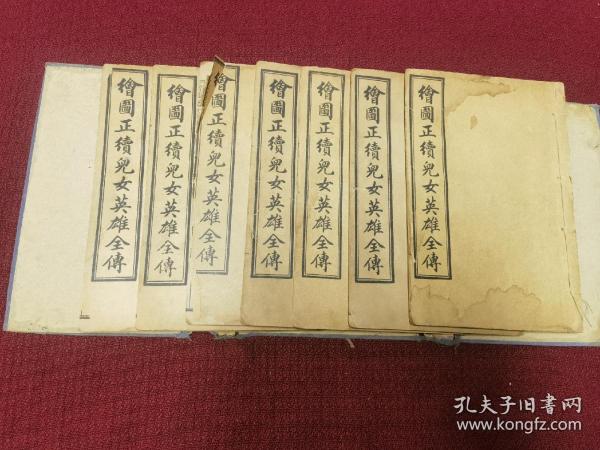 繪圖正續兒女英雄全傳
繪圖正續兒女英雄全傳
繪圖正續兒女英雄全傳
繪圖正續兒女英雄全傳
繪圖正續兒女英雄全傳
繪圖正續兒女英雄全傳
繪圖正續兒女英雄全傳
孔夫子旧书网
www.kongfz.com